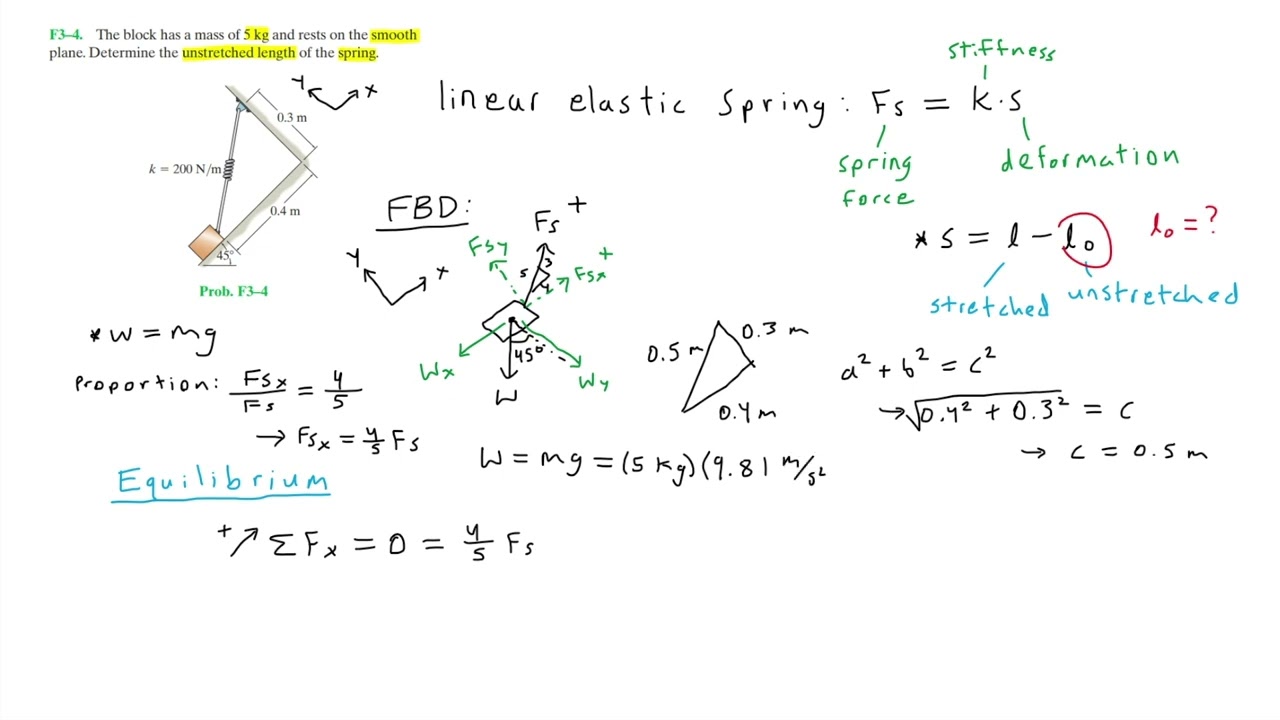 F3–4. The block has a mass of 5 kg and rests on the smooth
plane. Determine the unstretched length of the spring.
Y
x
0.3 m
k = 200 N/m
0.4 m
45°
Prob. F3–4
linear elastic Spring: Fs = k·s
stiffness
spring
force
deformation
* s = l − l₀
l₀ = ?
stretched
unstretched
FBD:
Y
x
Fs +
Fsy
Fsx +
5
3
4
45°
Wx
Wy
W
* W = mg
Proportion: Fsx/Fs = 4/5
→ Fsx = 4/5 Fs
0.5 m
0.3 m
0.4 m
a² + b² = c²
→ √0.4² + 0.3² = c
→ c = 0.5 m
W = mg = (5 kg)(9.81 m/s²
Equilibrium
+↗ ΣFx = 0 = 4/5 Fs